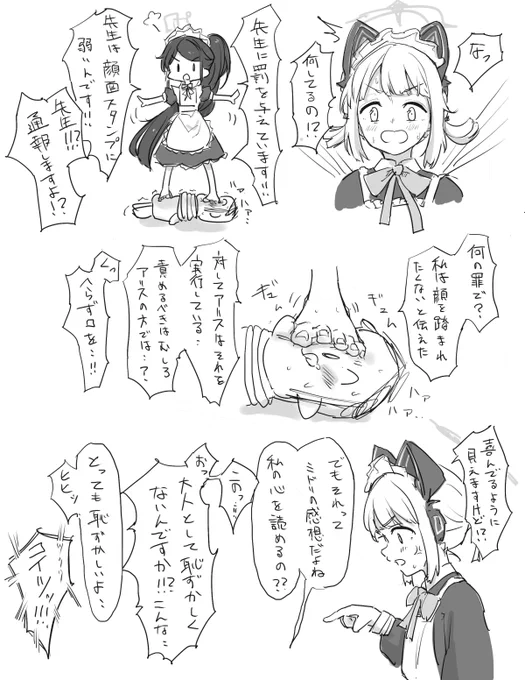 なっ
何してるの!?
先生に罰を与えています!!
先生は顔面スタンプに
弱いんです!!
先生!!?
通報しますよ!?
ハァハァ…
何の罪で?
私は顔を踏まれ
たくないと伝えた
対してアリスはそれを
実行している…
責めるべきはむしろ
アリスの方では…?
くっ
へらず口を…!!
ギュム
ギュム
ハァ
ハァ…
喜んでるように
見えますけど!?
でもそれって
ミドリの感想だよね
私の心を読めるの??
このっ…
おっ
大人として恥ずかしく
ないんですか!!?こんな…
とっても恥ずかしいよ…
ヒヒッ
コイツッ!!!